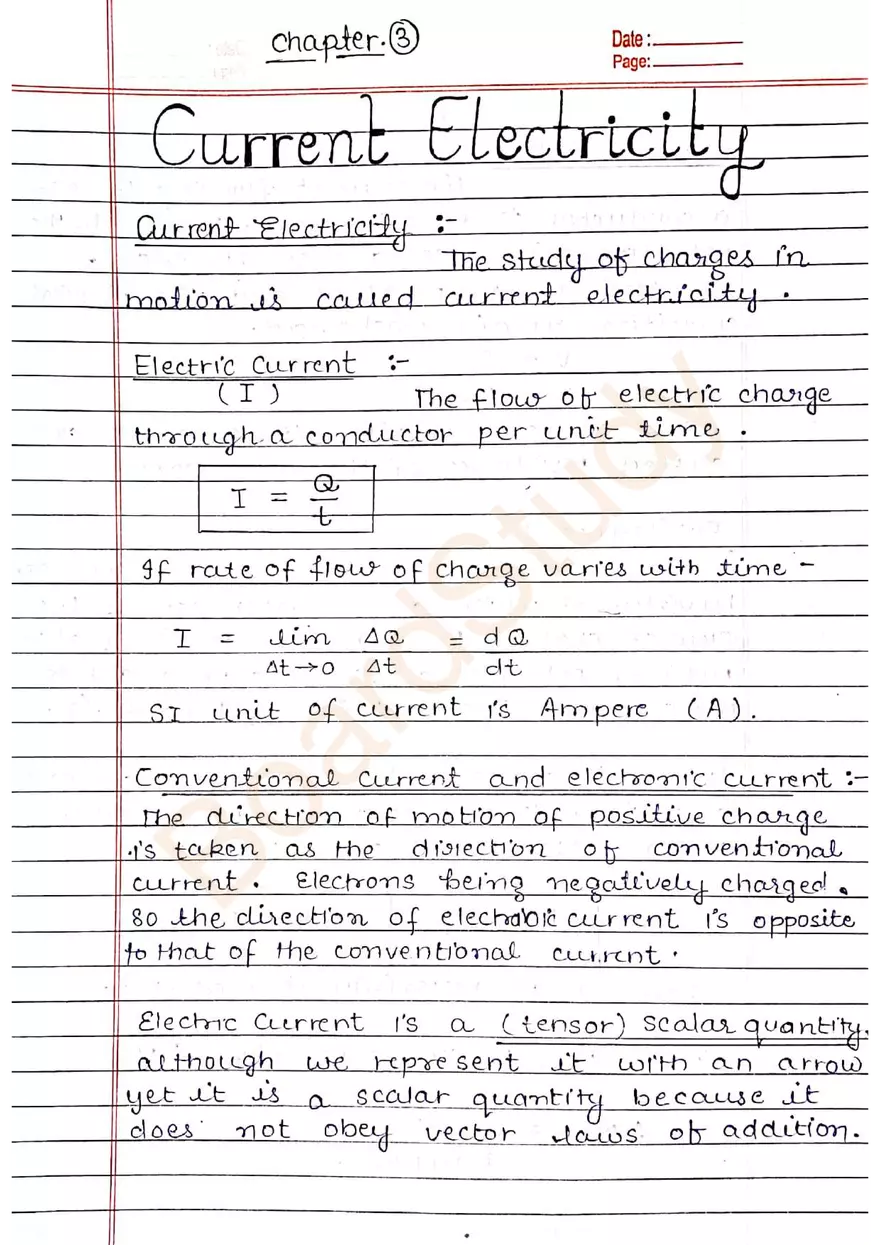 Chapter. ③
Date :
Page:
Current Electricity
Current Electricity :-
The study of charges in
motion is called current electricity .
Electric Current :-
( I )
The flow of electric charge
through a conductor per unit time .
I = Q/t
If rate of flow of charge varies with time -
I = lim Δt→0 ΔQ/Δt = dQ/dt
SI unit of current is Ampere (A).
Conventional Current and electronic current :-
The direction of motion of positive charge
is taken as the direction of conventional
current . Electrons being negatively charged .
So the direction of electronic current is opposite
to that of the conventional current .
Electric Current is a (tensor) scalar quantity.
although we represent it with an arrow
yet it is a scalar quantity because it
does not obey vector laws of addition.
BoardStudy